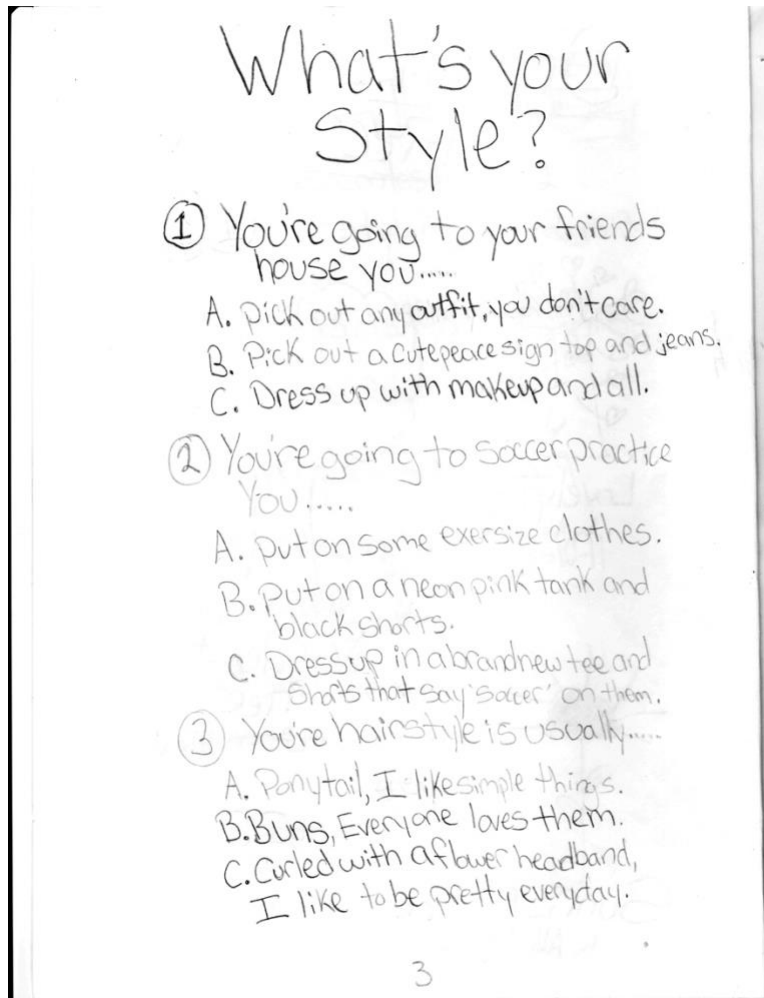 What's your
Style?
① You're going to your friends
house you.....
A. pick out any outfit, you don't care.
B. Pick out a cute peace sign top and jeans.
C. Dress up with makeup and all.
② You're going to soccer practice
You.....
A. put on some exersize clothes.
B. Put on a neon pink tank and
black shorts.
C. Dress up in a brand new tee and
Shorts that say "soccer" on them.
③ You're hairstyle is usually.....
A. Ponytail, I like simple things.
B. Buns, Everyone loves them.
C. Curled with a flower headband,
I like to be pretty everyday.
3